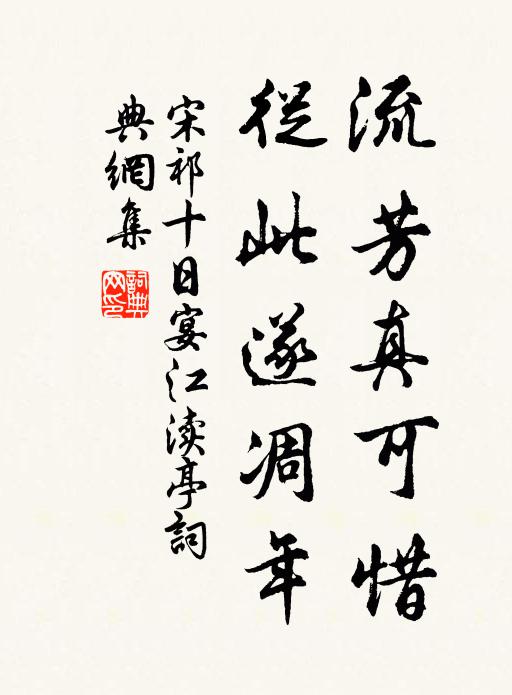 流芳真可惜
從此遂凋年
宋祁十日宴江渎亭詞
典網集
詞典网印